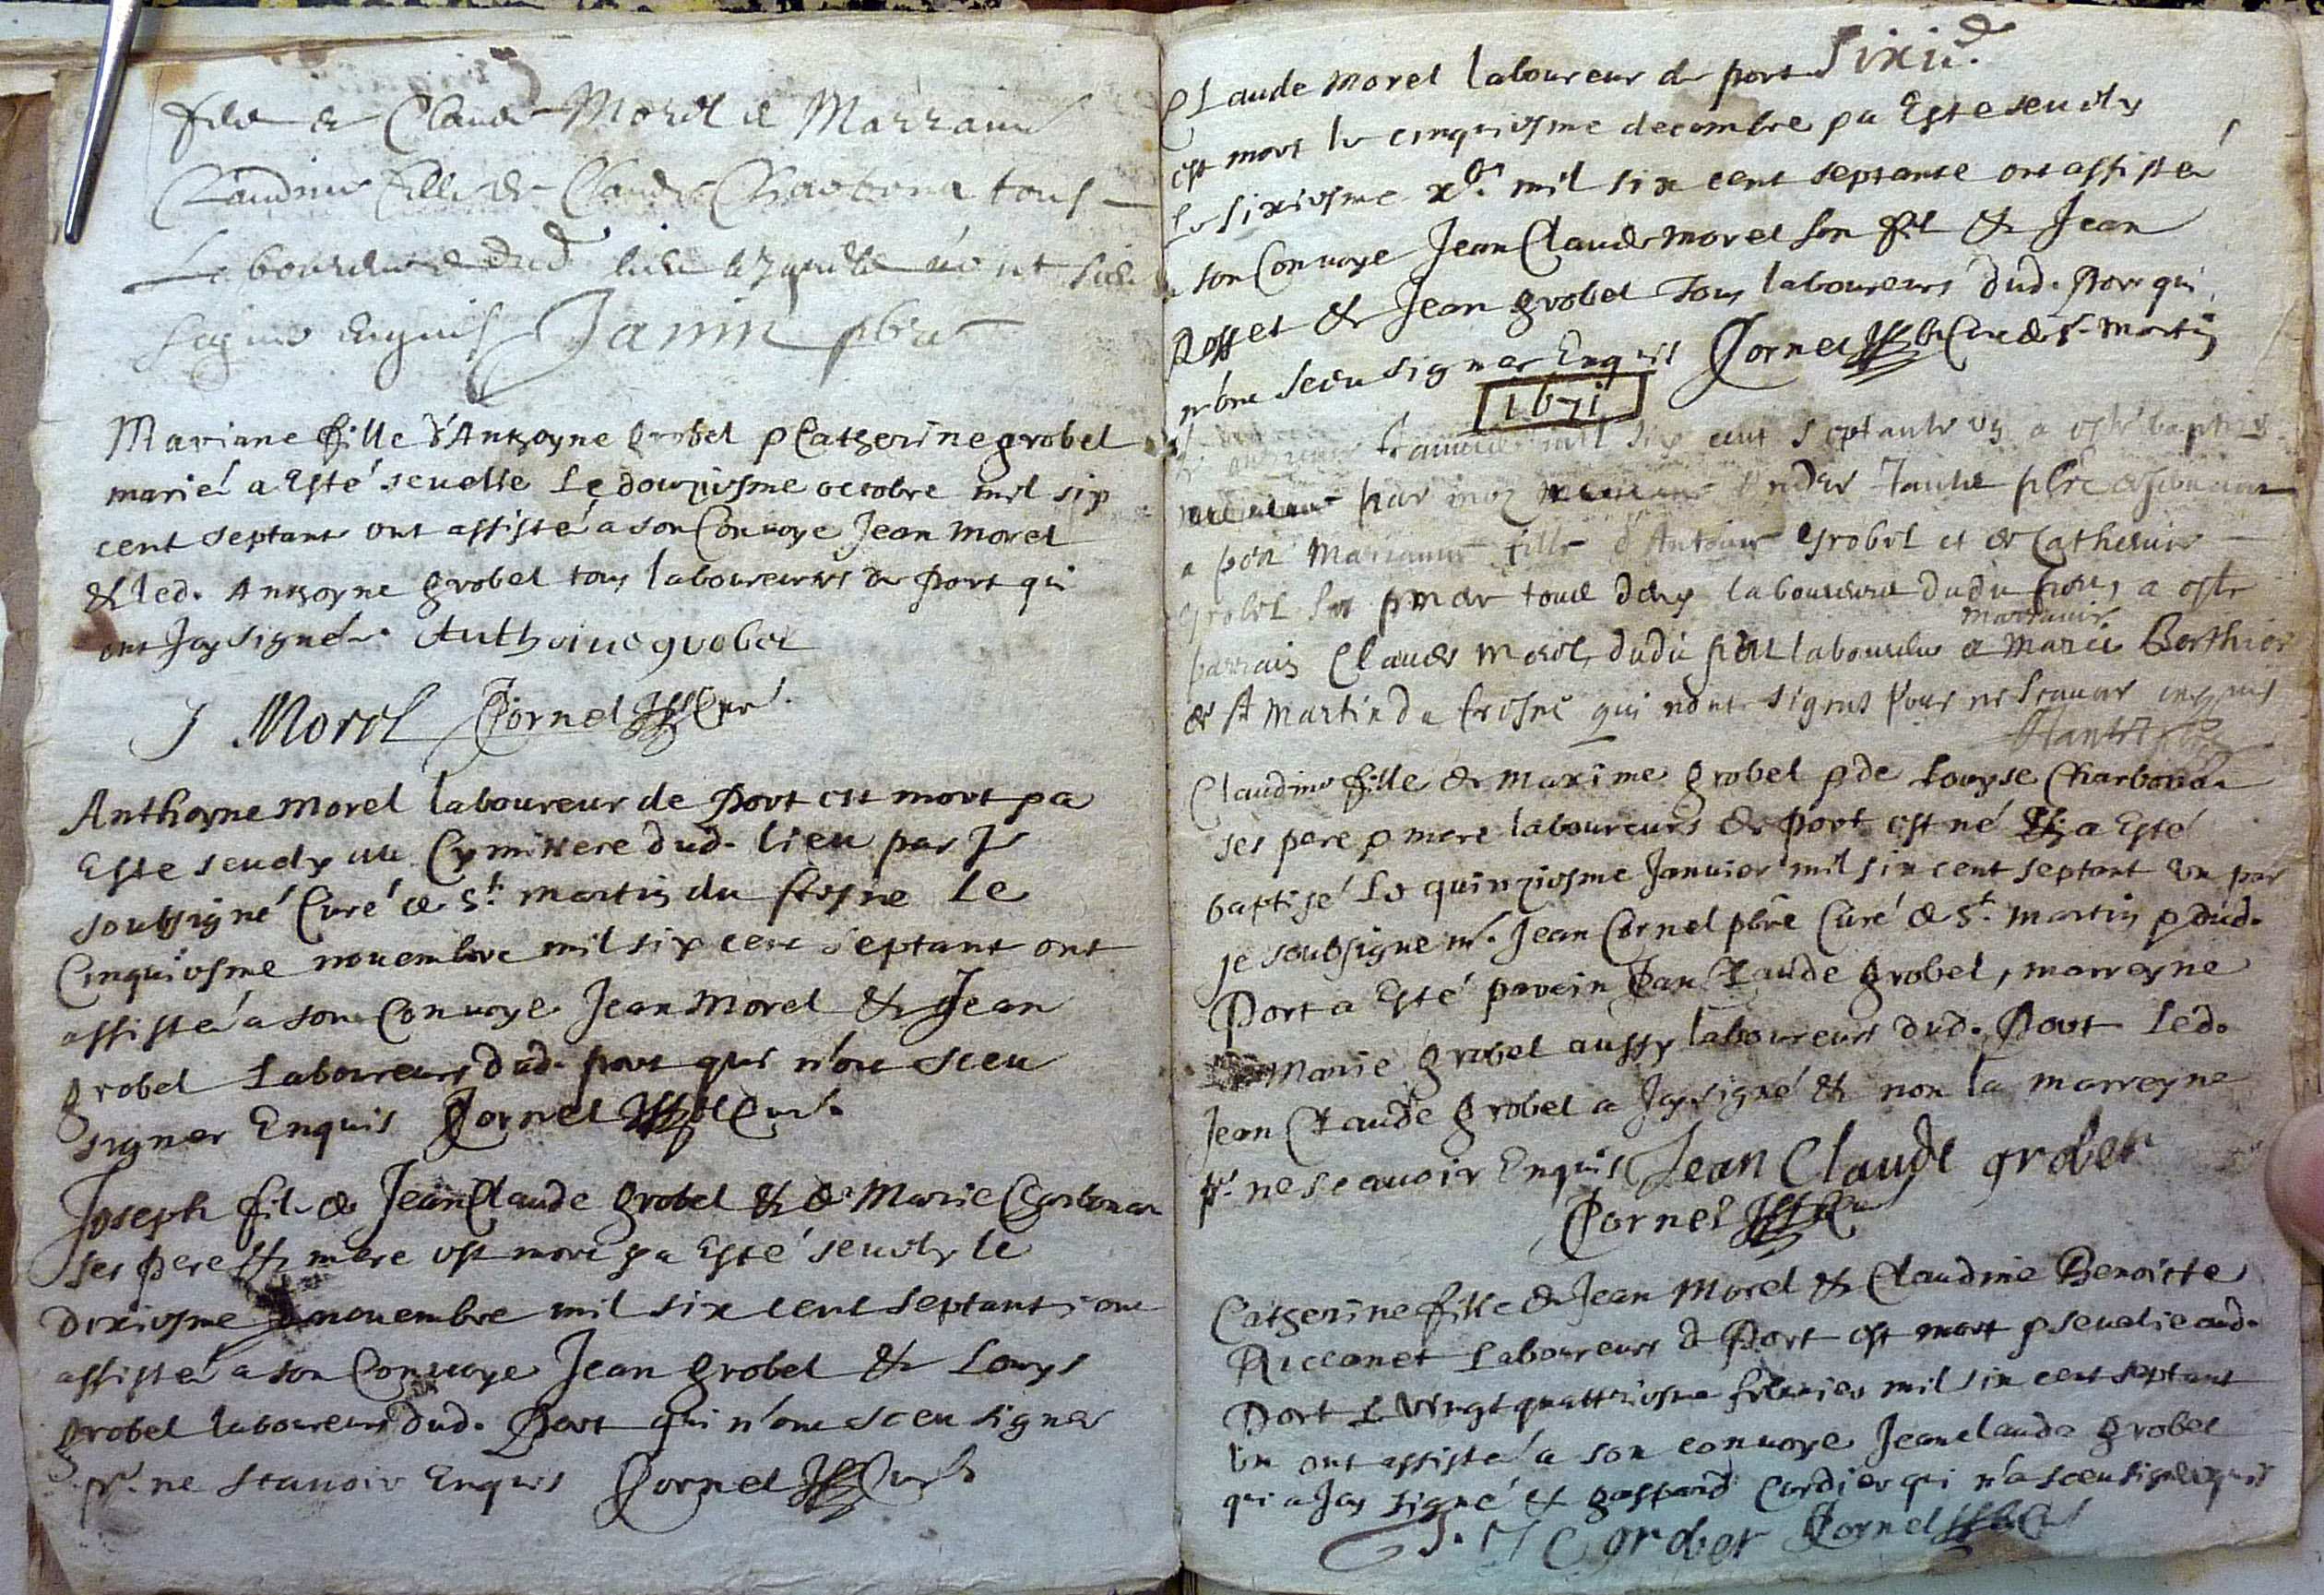 fils de Claude Morel et Marraine
Claudine fille de Claude Charbona tous
Laboureurs dud lieu lesquels n'ont sceu
signer enquis Janin pbre
Mariane fille d'Anthoyne grobel & Catherine grobel
mariés a Esté sevelie Le douziesme octobre mil six
cent septante ont assisté a son Convoye Jean Morel
& led. Anthoyne grobel tous laboureurs de Port qui
ont Icy signé. Anthoine grobel
J Morel Cornel Curé.
Anthoyne Morel laboureur de Port est mort & a
Esté sevely au Cymittere dud. lieu par Je
soubsigné Curé de St. Martin du fresne Le
Cinquiesme novembre mil six cent septante ont
assisté a son Convoye Jean Morel & Jean
grobel Laboureurs dud. port qui n'ont sceu
signer Enquis Cornel Curé.
Joseph fils de Jean Claude grobel & de Marie Charbona
ses Pere & mere est mort & a Esté sevely le
dixiesme novembre mil six cent septante ont
assisté a son Convoye Jean grobel & Louys
grobel laboureurs dud. Port qui n'ont sceu signer
pr. ne scavoir Enquis Cornel Curé
Claude Morel laboureur de port
est mort le cinquiesme decembre & a Esté sevely
Le sixiesme xbre. mil six cent septante ont assisté
a son Convoye Jean Claude Morel son fil & Jean
Rosset & Jean grobel tous laboureurs dud. Port qui
n'ont sceu signer Enquis Cornel Curé de St. Martin
1671
Janvier mil six cent septante un a esté baptisée
par moy pbre
a port Marianne fille d'Antoine Grobel et de Catherine
grobel tous deux laboureurs dudit port, a esté
marraine
parrain Claude Morel, dudit port laboureur & Marie Berthier
de St Martin du fresne qui n'ont signés pour ne scavoir enquis
Claudine fille de Maxime grobel & de Louyse Charbona
ses pere & mere laboureurs de Port est né & a Esté
baptisé Le quinziesme Janvier mil six cent septant un par
je soubsigné mr. Jean Cornel pbre Curé de St. Martin & dud.
Port a Esté parein Jean Claude grobel, marreyne
Marie grobel aussy laboureurs dud. Port Led.
Jean Claude grobel a Icy signé & non la marreyne
pr. ne scavoir Enquis Jean Claude grobel
Cornel Curé
Catherine fille de Jean Morel & Claudine Benoitte
Ricconet Laboureurs de Port est mort & sevelie aud.
Port Le vingt quattriesme febvrier mil six cent septant
un ont assisté a son convoye Jean claude grobel
qui a Icy signé & gaspard Cordier qui n'a sceu signer enquis
J. C grobel Cornel Curé